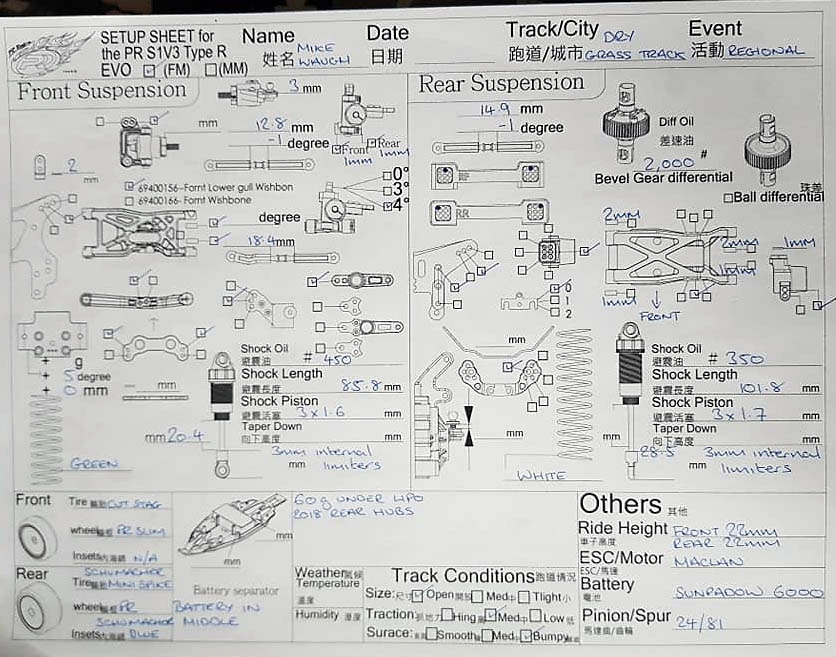 SETUP SHEET for
the PR S1V3 Type R
EVO (FM) (MM)
Name
姓名 MIKE WAUGH
Date
日期
Track/City DRY
跑道/城市 GRASS TRACK
Event
活動 REGIONAL
Front Suspension
3 mm
mm
12.8 mm
-1 degree
Front Rear
1mm 1mm
2
mm
69400156-Fornt Lower gull Wishbon
69400166- Fornt Wishbone
0°
3°
4°
degree
18.4mm
g
+ 5 degree
+ 0 mm
mm
Shock Oil
避震油 # 450
Shock Length
避震長度 85.8 mm
Shock Piston
避震活塞 3x1.6 mm
Taper Down
向下高度
mm 20.4
3mm internal
mm limiters
GREEN
Rear Suspension
14.9 mm
-1 degree
Diff Oil
差速油
2,000 #
Bevel Gear differential
珠差
Ball differential
RF
RR
2mm
2mm
1mm
1mm
1mm
FRONT
0
1
2
mm
mm
WHITE
Shock Oil
避震油 # 350
Shock Length
避震長度 101.8 mm
Shock Piston
避震活塞 3x1.7 mm
Taper Down
向下高度
mm
28.5
3mm internal
mm limiters
Front
Tire CUT STAG
wheel PR SLIM
Insets N/A
Rear
SCHUMACHER
Tire MINI SPIKE
wheel PR
SCHUMACHER
Insets BLUE
mm
mm
Battery separator
BATTERY IN
MIDDLE
60g UNDER LIPO
2018 REAR HUBS
Weather氣候
Temperature
溫度
Humidity 濕度
Track Conditions跑道情況
Size:尺寸 Open Med Tlight小
Traction:抓地力 Hing Med Low低
Surace: Smooth Med中 Bumpy
Others 其他
Ride Height FRONT 22mm
車子高度 REAR 22mm
ESC/Motor MACLAN
ESC/馬達
Battery
電池 SUNPADOW 6000
Pinion/Spur 24/81
馬達齒/齒輪